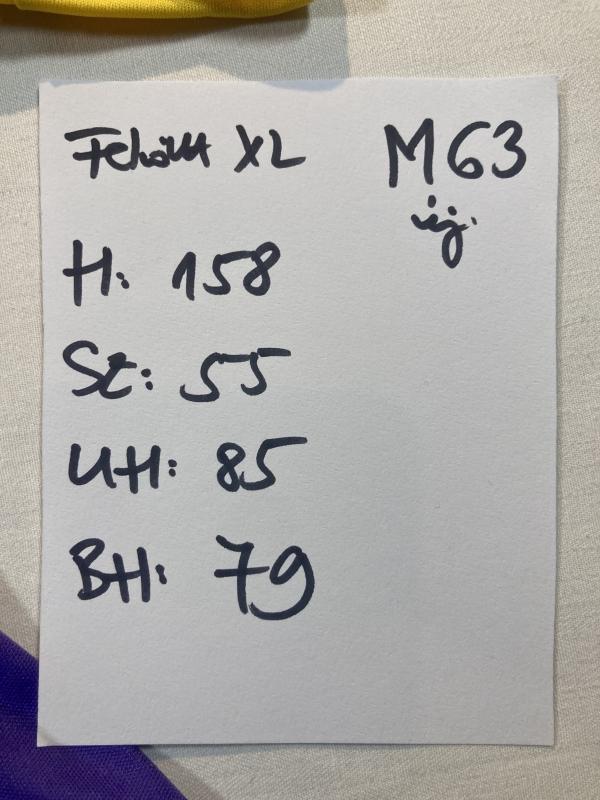 Felnőtt XL
M63
új.
H: 158
Sz: 55
UH: 85
BH: 79